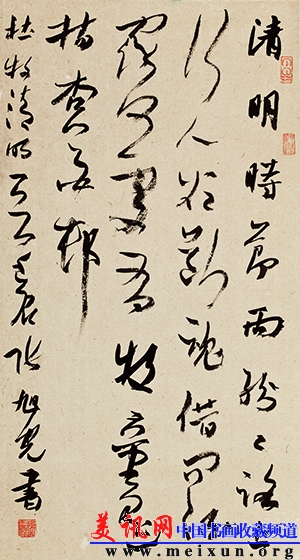 清明時節雨紛々路上
行人欲斷魂借問酒
家何處有牧童遙
指杏花村
杜牧清明 張旭光書
美讯网 中国书画收藏频道
www.meixun.org